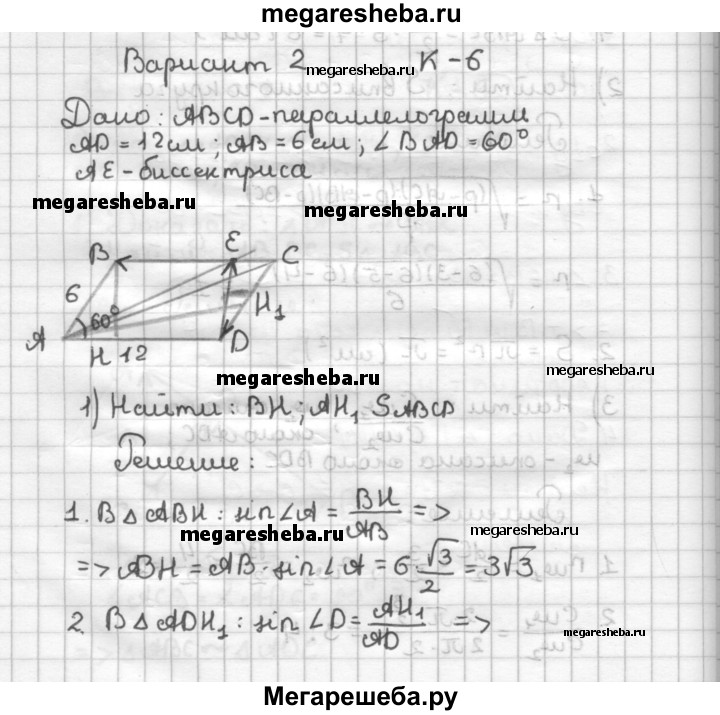 megaresheba.ru
Вариант 2 megaresheba.ru К-6
Дано: ABCD-параллелограмм
AD = 12см; AB = 6см; ∠BAD = 60°
AE - биссектриса
megaresheba.ru megaresheba.ru
B E C
6 60° H₁
A H 12 D
megaresheba.ru megaresheba.ru
1) Найти: BH; AH₁ SABCD
Решение:
1. В △ABH: sin∠A = BH/AB =>
megaresheba.ru megaresheba.ru
=> BH = AB · sin∠A = 6 · √3/2 = 3√3
2. В △ADH₁: sin∠D = AH₁/AD =>
megaresheba.ru megaresheba.ru
Мегарешеба.ру